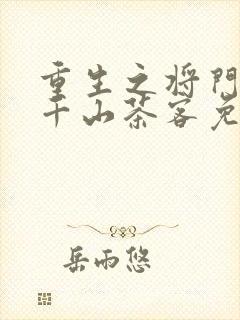 重生之将门
千山茶客免
岳雨悠